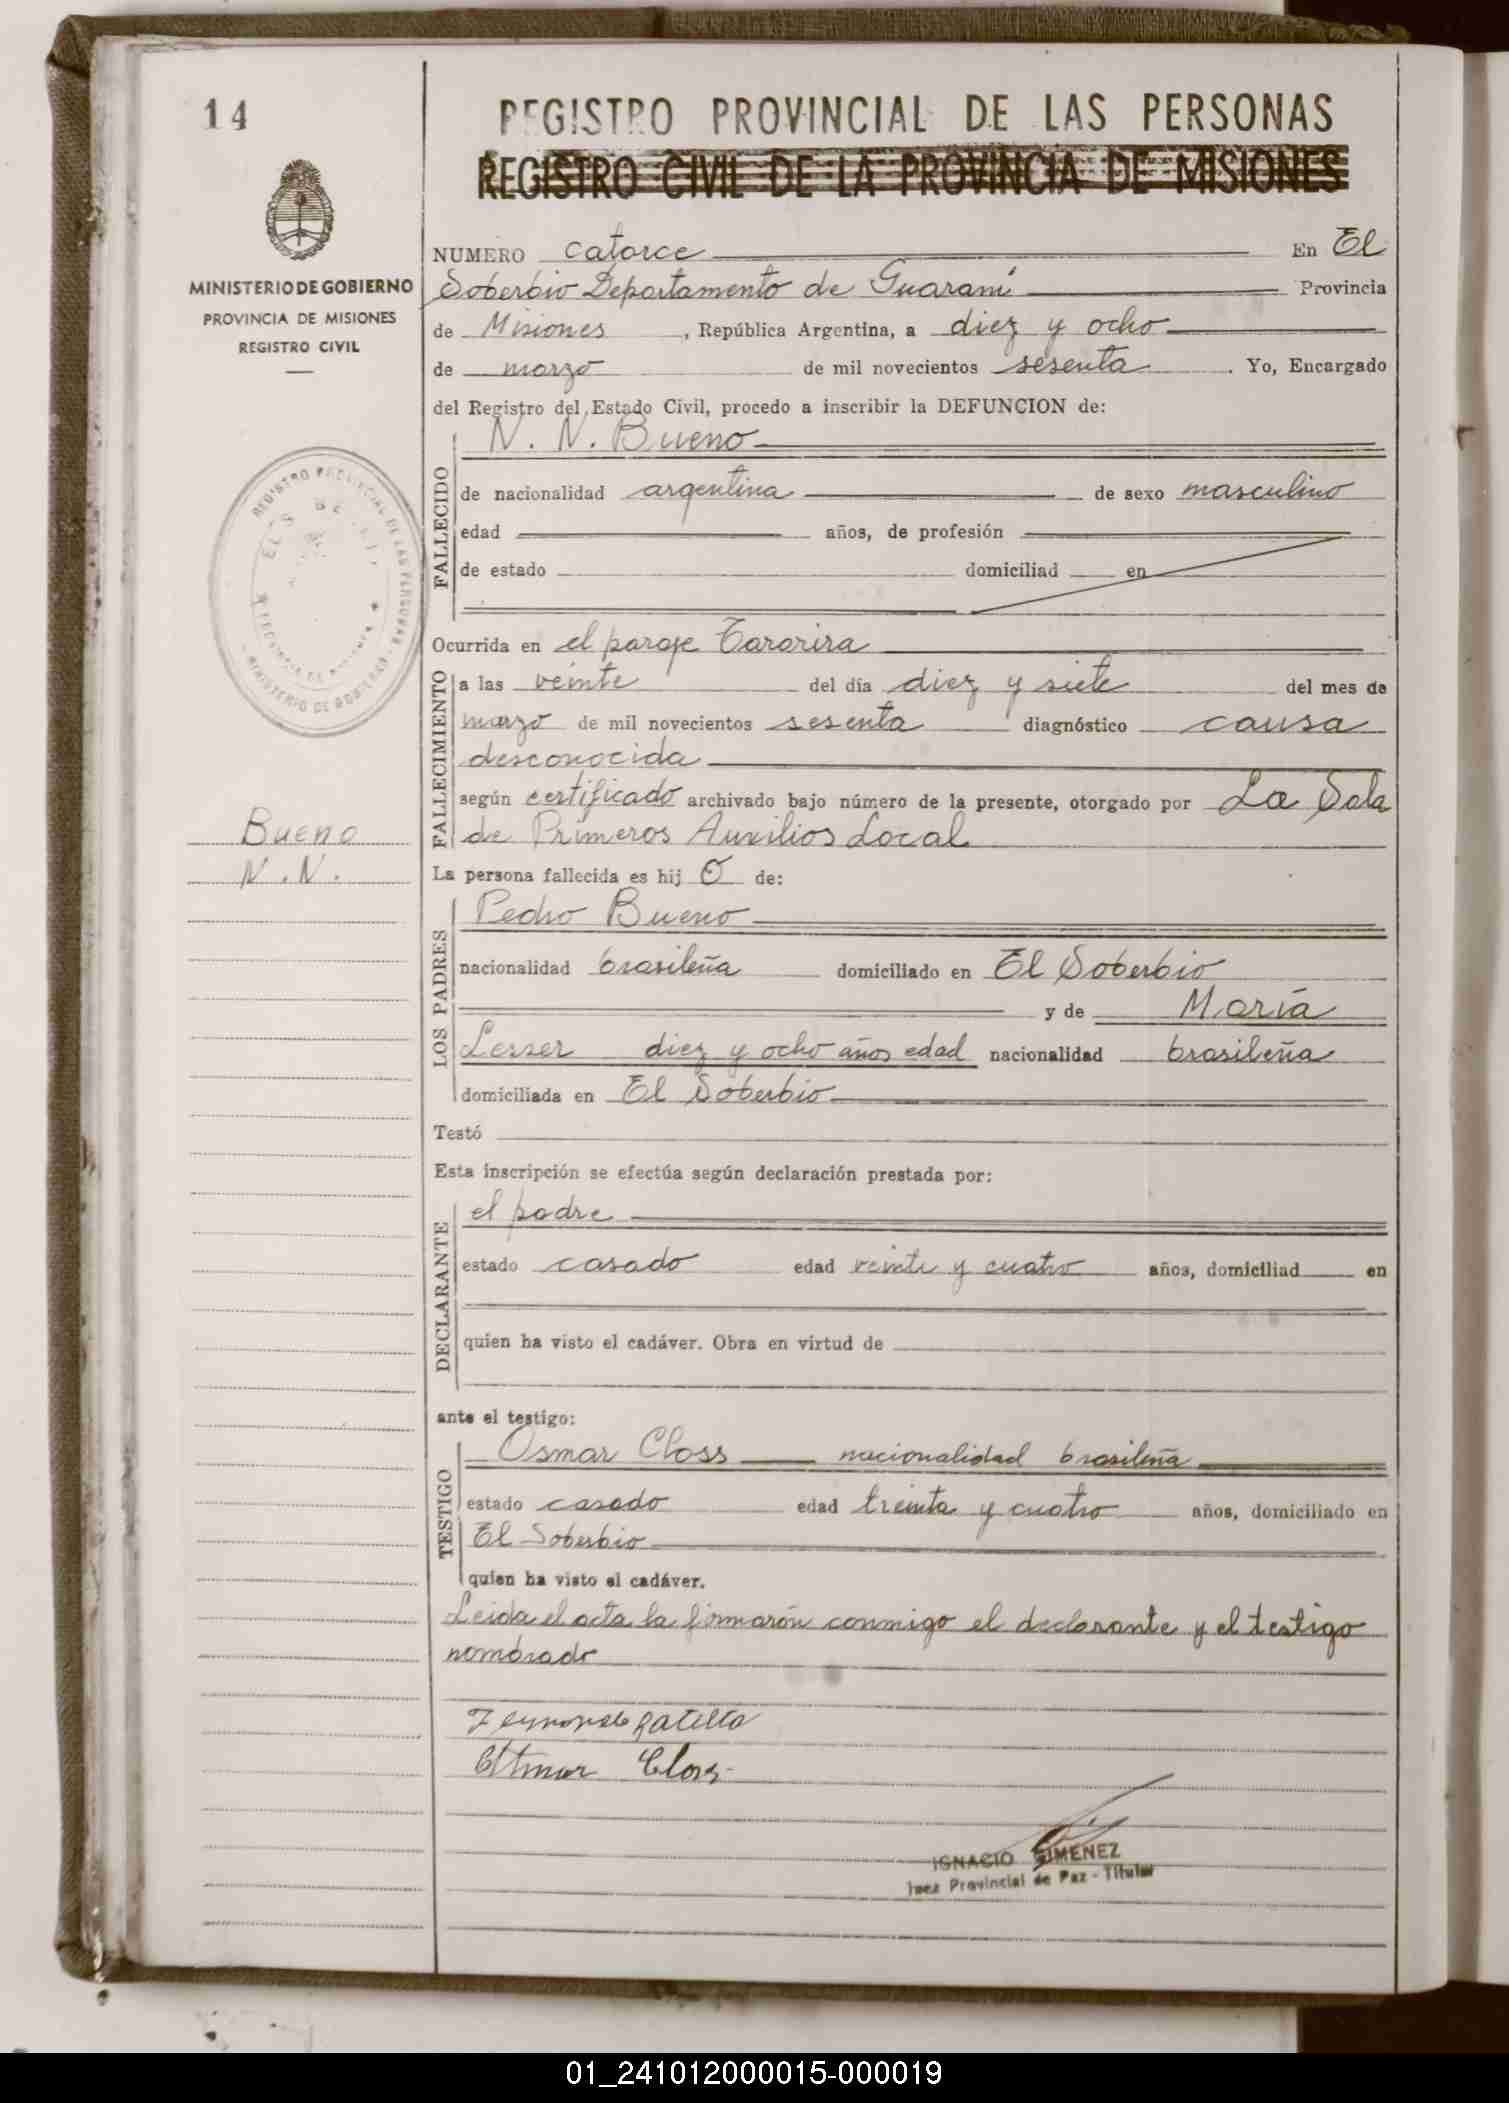 14
REGISTRO PROVINCIAL DE LAS PERSONAS
REGISTRO CIVIL DE LA PROVINCIA DE MISIONES
MINISTERIO DE GOBIERNO
PROVINCIA DE MISIONES
REGISTRO CIVIL
NUMERO catorce En El
Soberbio Departamento de Guaraní Provincia
de Misiones, República Argentina, a diez y ocho
de marzo de mil novecientos sesenta. Yo, Encargado
del Registro del Estado Civil, procedo a inscribir la DEFUNCION de:
FALLECIDO
N. N. Bueno
de nacionalidad argentina de sexo masculino
edad años, de profesión
de estado domiciliad en
Ocurrida en el paraje Tararira
FALLECIMIENTO
a las veinte del día diez y siete del mes de
marzo de mil novecientos sesenta diagnóstico causa
desconocida
según certificado archivado bajo número de la presente, otorgado por La Sala
de Primeros Auxilios Local
Bueno
N. N.
La persona fallecida es hij o de:
LOS PADRES
Pedro Bueno
nacionalidad brasileña domiciliado en El Soberbio
y de María
Lesser diez y ocho años edad nacionalidad brasileña
domiciliada en El Soberbio
Testó
Esta inscripción se efectúa según declaración prestada por:
DECLARANTE
el padre
estado casado edad veinte y cuatro años, domiciliad en
quien ha visto el cadáver. Obra en virtud de
ante el testigo:
TESTIGO
Osmar Closs nacionalidad brasileña
estado casado edad treinta y cuatro años, domiciliado en
El Soberbio
quien ha visto el cadáver.
Leida el acta la firmarón conmigo el declarante y el testigo
nombrado
Closs
IGNACIO GIMENEZ
Juez Provincial de Paz - Titular
REGISTRO PROVINCIAL DE LAS PERSONAS
MINISTERIO DE GOBIERNO
PROVINCIA DE MISIONES
01_241012000015-000019